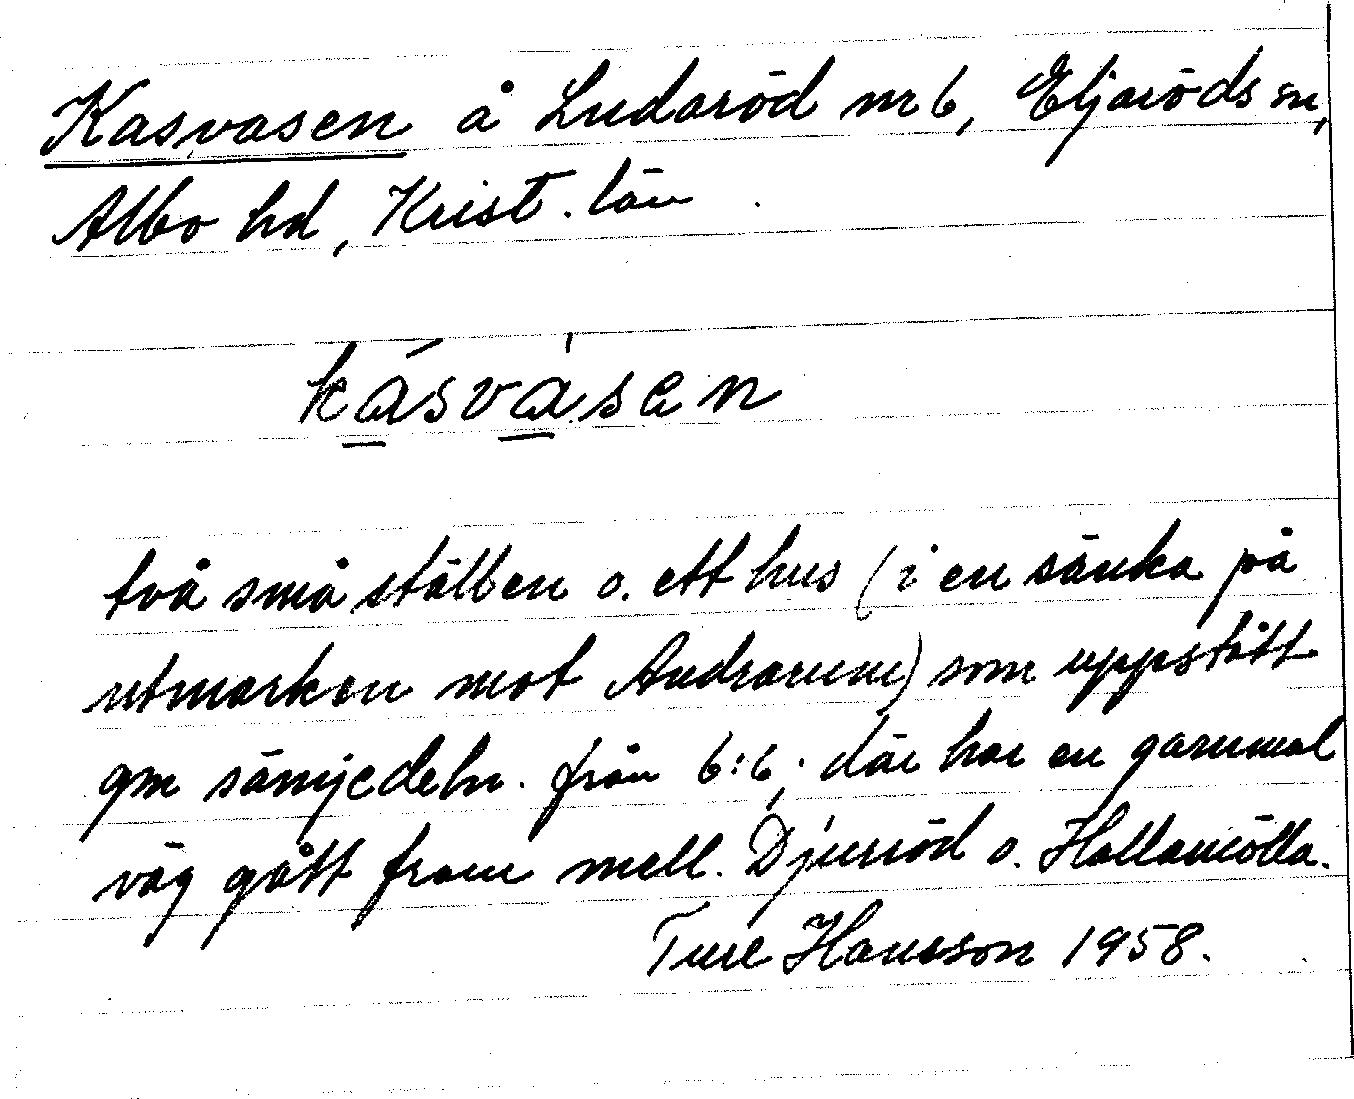 Kasvasen å Ludaröd nr 6, Eljaröds sn,
Albo hd, Krist. län.
kásvàsen
två små ställen o. ett hus (i en sänka på
utmarken mot Andrarum) som uppstått
gm sämjedeln. från 6:6; där har en gammal
väg gått fram mell. Djuröd o. Hallamölla.
Ture Hansson 1958.